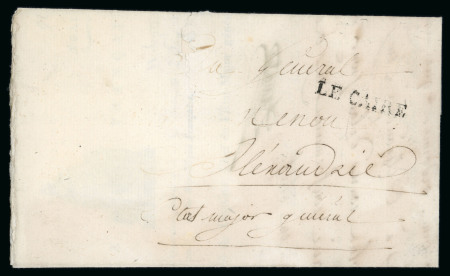 au général
LE CAIRE
Menou
Aléxandrié
Etat major général